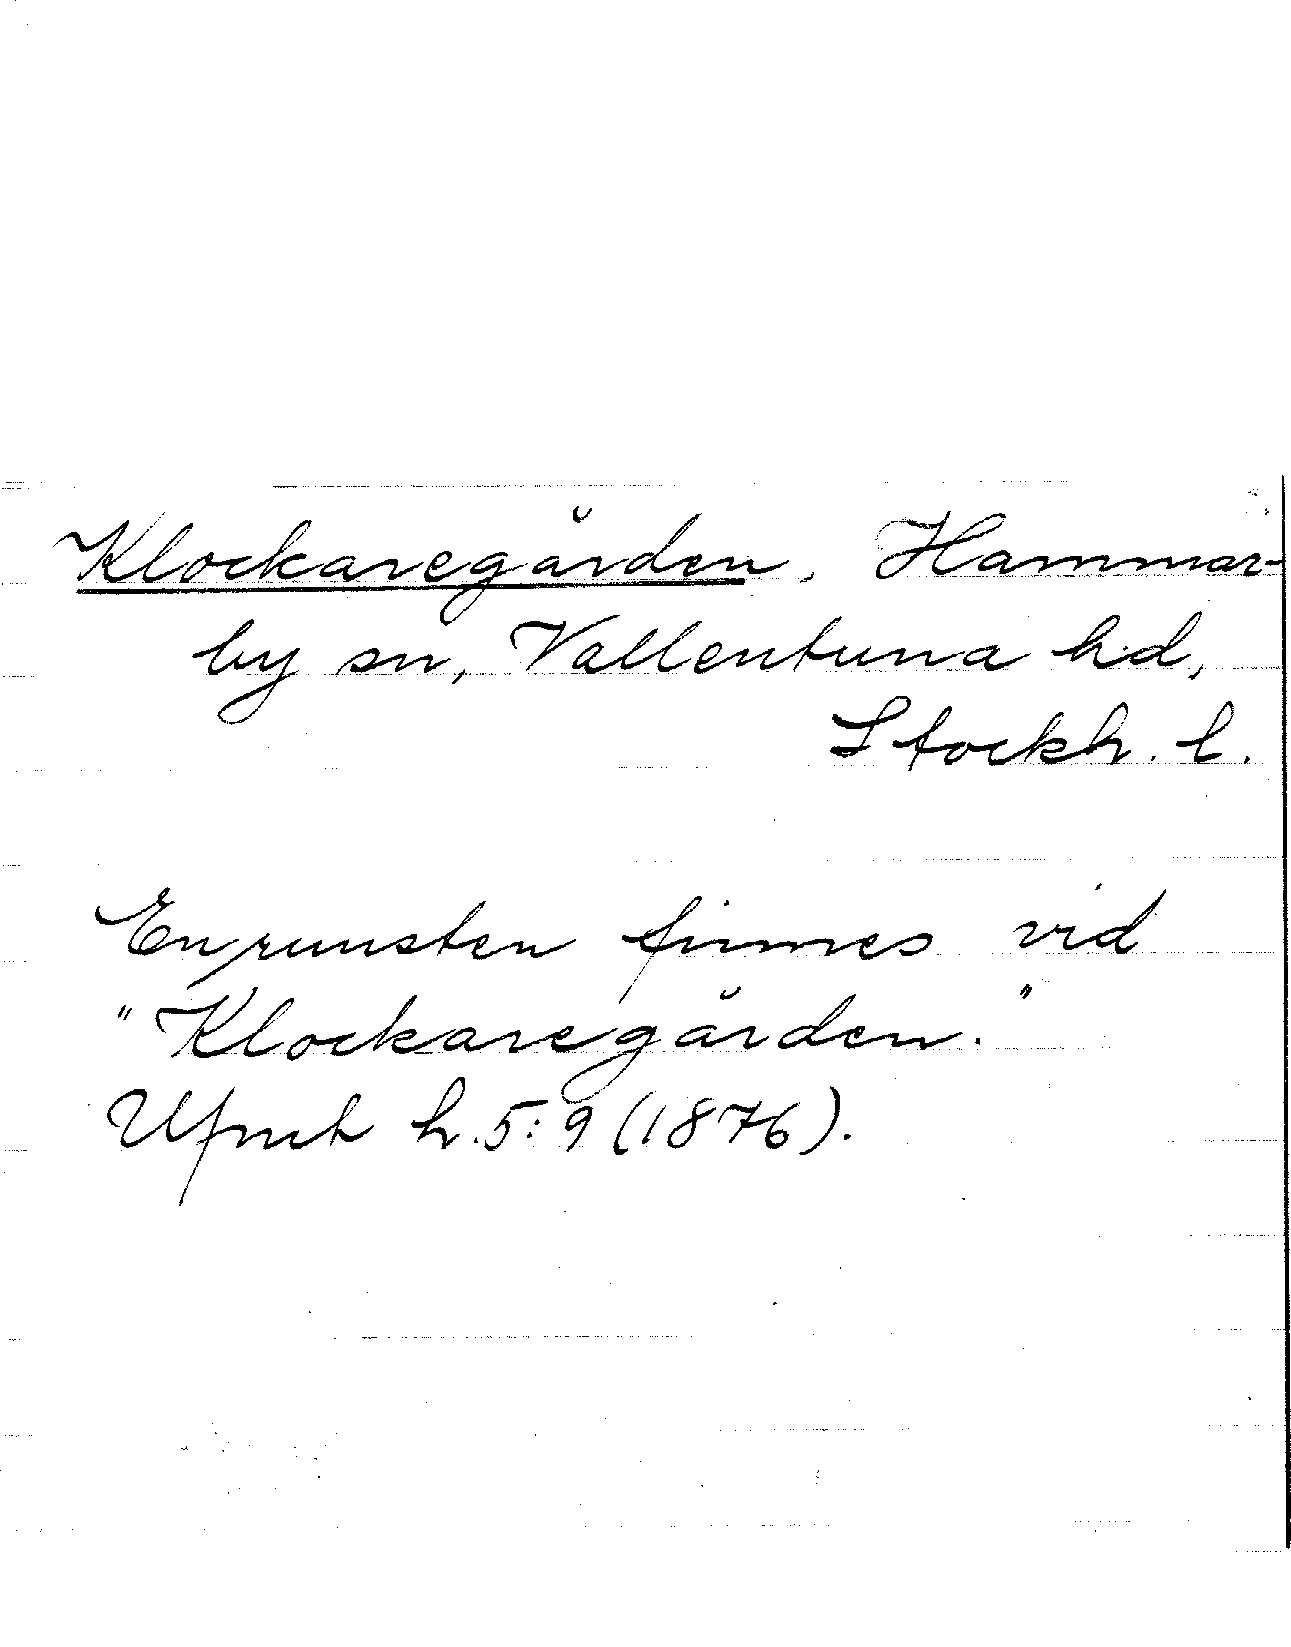 Klockaregården, Hammar-
by sn, Vallentuna hd,
Stockh. l.
En runsten finnes vid
"Klockaregården."
Ufmt h. 5:9 (1876).